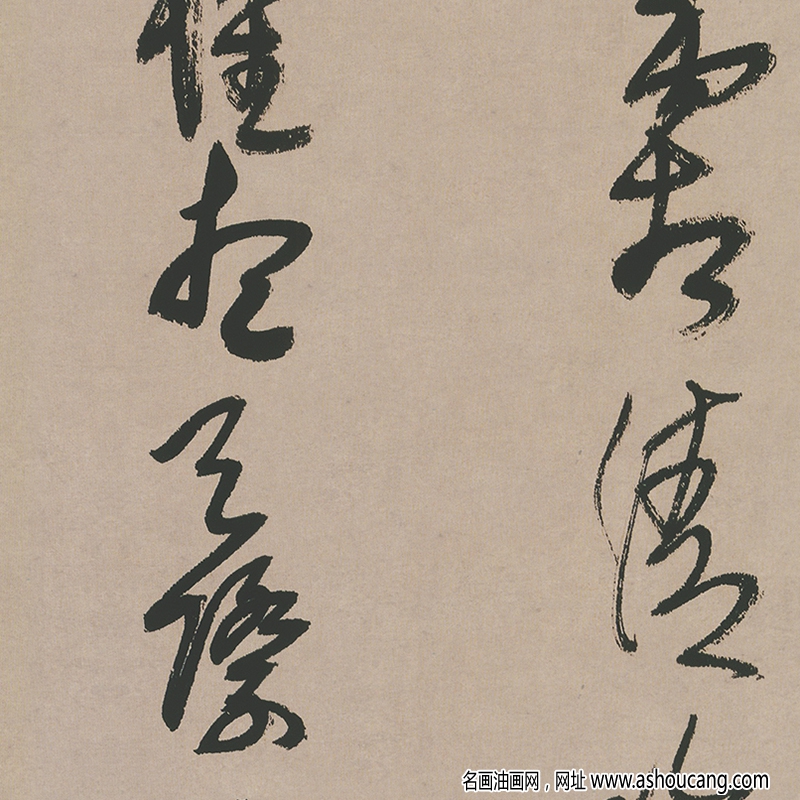 霜清
惟天際
名画油画网，网址 www.ashoucang.com